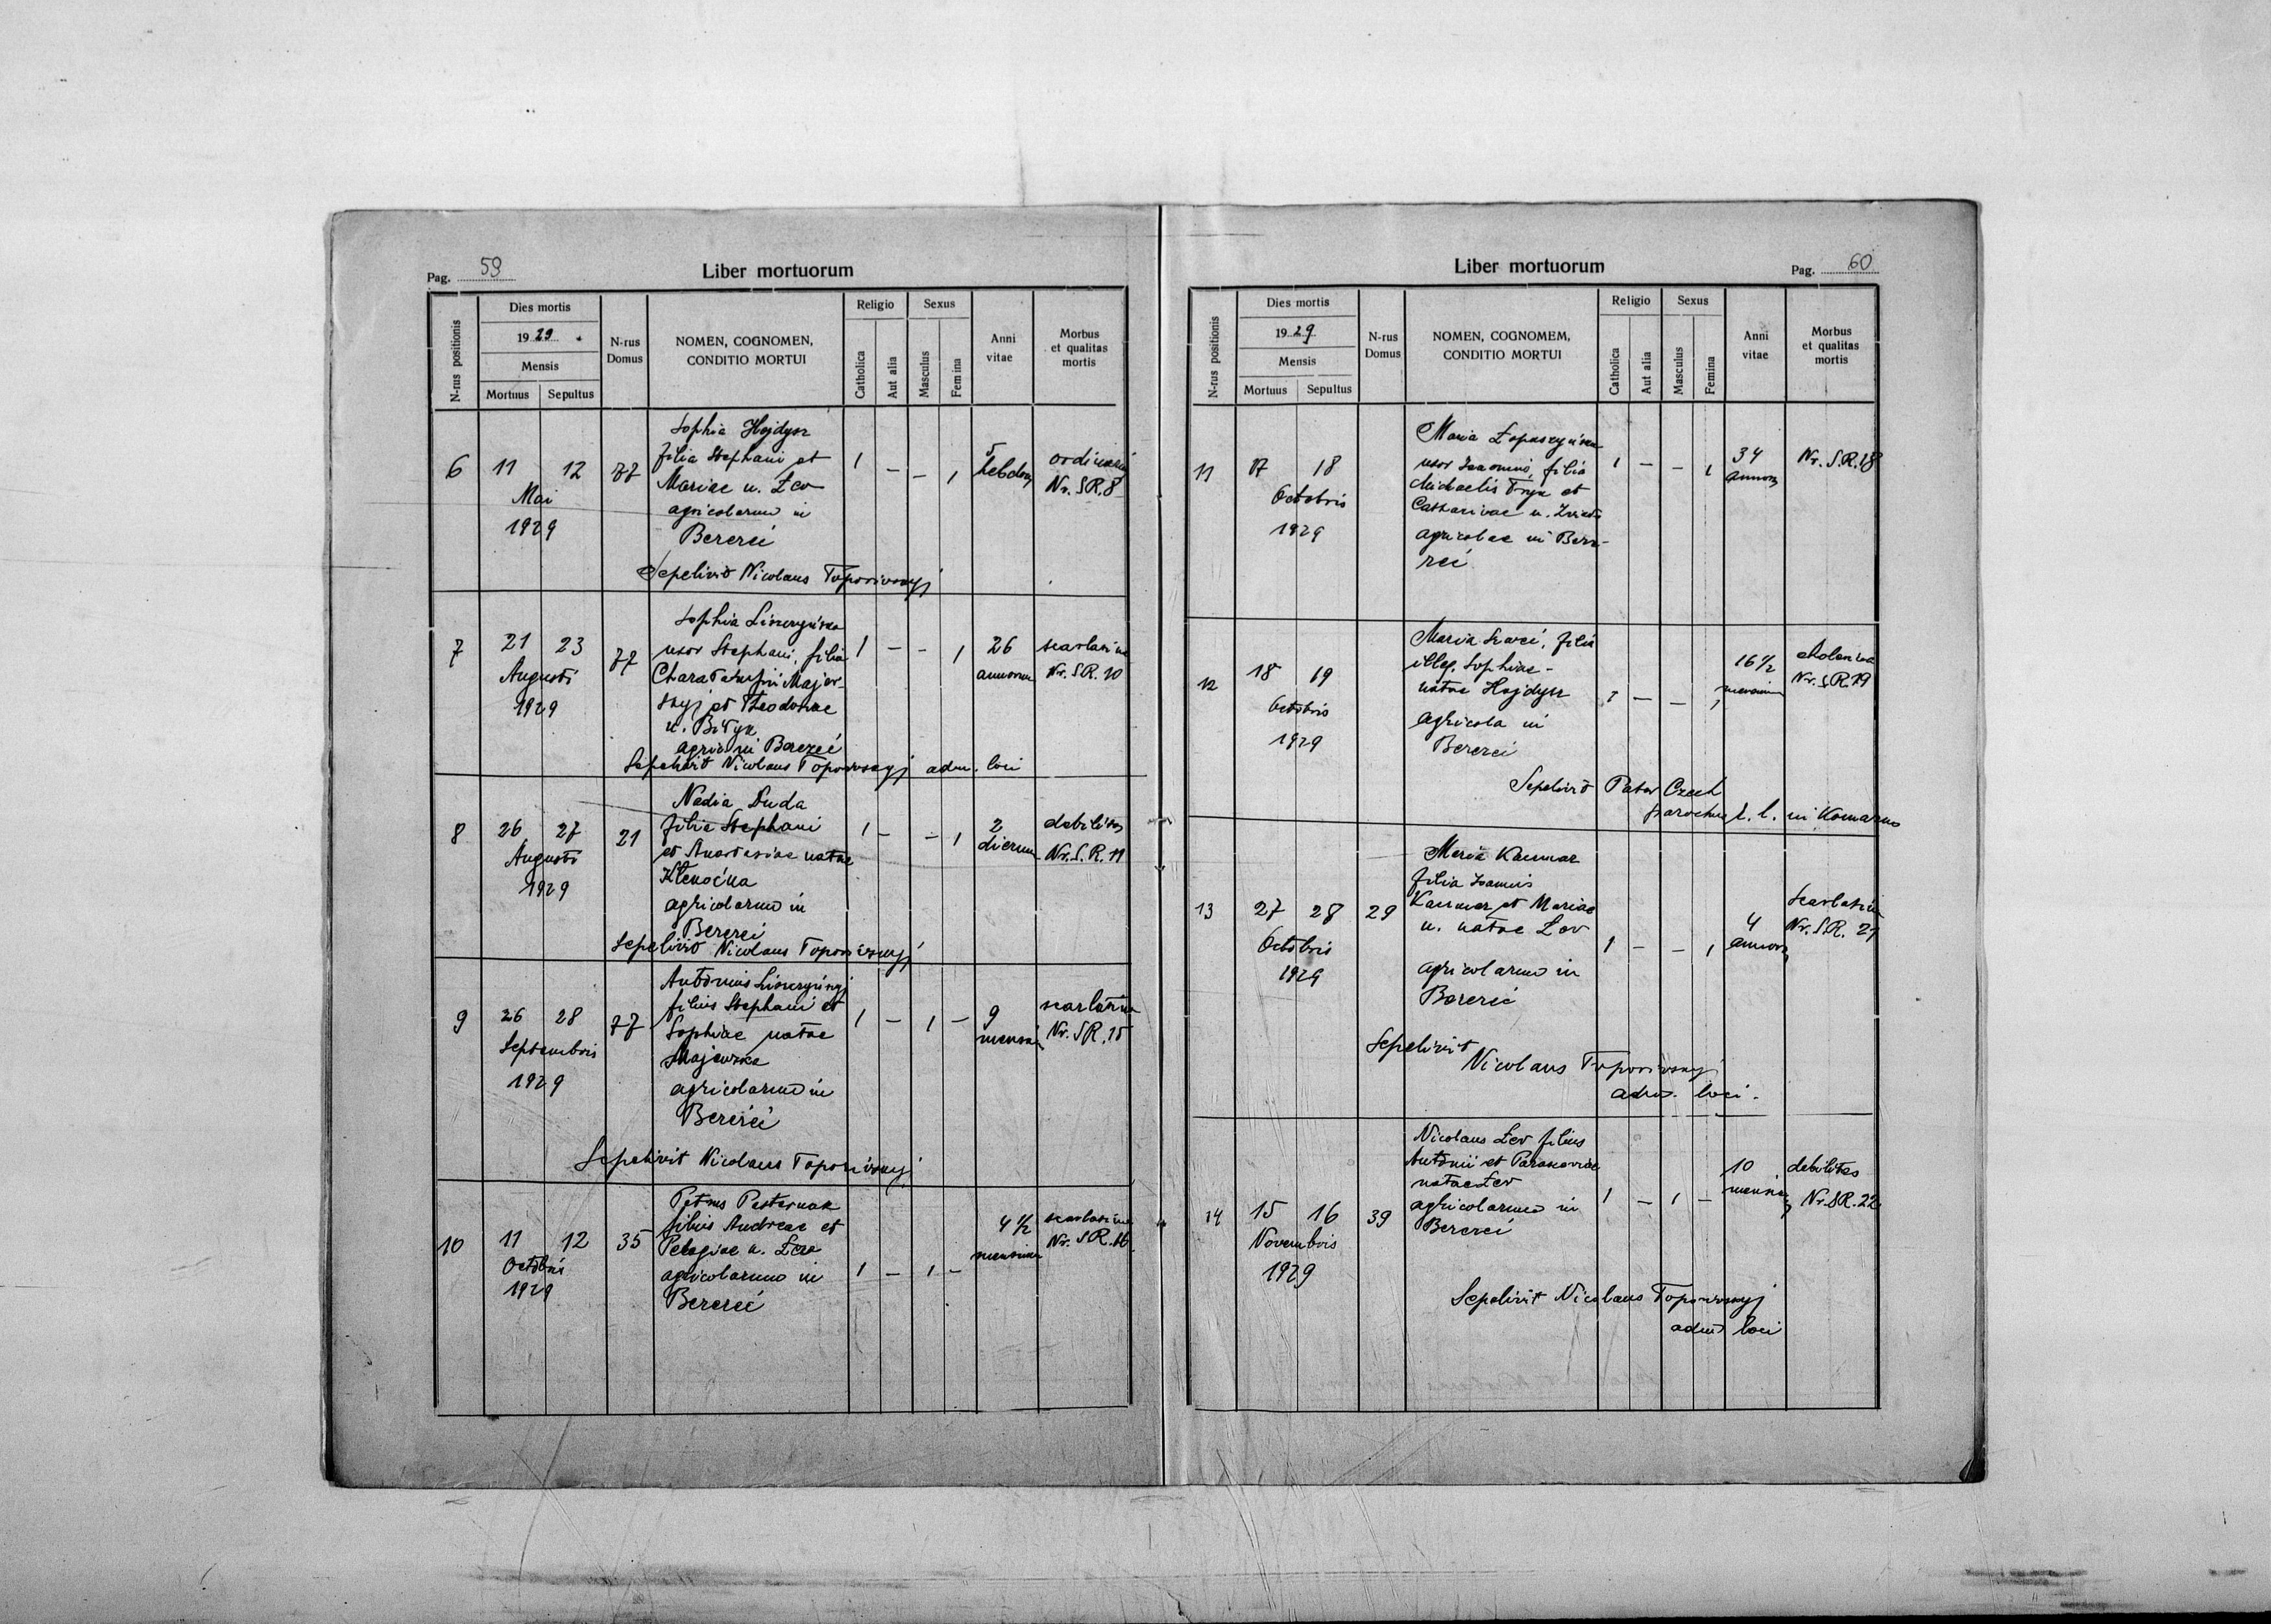 Pag. 59
Liber mortuorum
N-rus positionis
Dies mortis
1929
Mensis
Mortuus
Sepultus
N-rus
Domus
NOMEN, COGNOMEN,
CONDITIO MORTUI
Religio
Catholica
Aut alia
Sexus
Masculus
Femina
Anni
vitae
Morbus
et qualitas
mortis
6
11
12
Mai
1929
77
Sophia Hojdysz
filia Stephani et
Mariae n. Łev
agricolarum in
Berezci
1 — — 1
5
hebdom
ordinaria
Nr. S.R. 8
Sepelivit Nicolaus Toporivskyj
7
21
23
Augusti
1929
77
Sophia
uxor Stephani, filia
Majev-
skyj et Theodorae
n. Bityk
agric in Berezci
1 — — 1
26
annorum
scarlatina
Nr. S.R. 10
Sepelivit Nicolaus Toporivskyj adm. loci
8
26
27
Augusti
1929
21
Nadia Duda
filia Stephani
et Anastasiae natae
agricolarum in
Berezci
1 — — 1
2
dierum
debilitas
Nr. S.R. 11
Sepelivit Nicolaus Toporivskyj
9
26
28
Septembris
1929
77
Antonius
filius Stephani et
Sophiae natae
Majewska
agricolarum in
Berezci
1 — 1 —
9
mensium
scarlatina
Nr. S.R. 15
Sepelivit Nicolaus Toporivskyj
10
11
12
Octobris
1929
35
Petrus Pasternak
filius Andreae et
Pelagiae n.
agricolarum in
Berezci
1 — 1 —
4 1/2
mensium
scarlatina
Nr. S.R. 16
Liber mortuorum
Pag. 60
N-rus positionis
Dies mortis
1929
Mensis
Mortuus
Sepultus
N-rus
Domus
NOMEN, COGNOMEM,
CONDITIO MORTUI
Religio
Catholica
Aut alia
Sexus
Masculus
Femina
Anni
vitae
Morbus
et qualitas
mortis
11
17
18
Octobris
1929
Maria
uxor Joannis, filia
Michaelis et
Catharinae n.
agricolae in Bere-
zci
1 — — 1
34
annor
Nr. S.R. 18
12
18
19
Octobris
1929
Maria filia
illeg. Sophiae
natae Hojdysz
agricola in
Berezci
1 — — 1
16 1/2
mensium
Nr. S.R. 19
Sepelivit Pater Czech
parochus l. l. in Komarno
13
27
28
Octobris
1929
29
Maria Kaczmar
filia Joannis
Kaczmar et Mariae
n. natae Lev
agricolarum in
Berezci
1 — — 1
4
annor
scarlatina
Nr. S.R. 21
Sepelivit
Nicolaus Toporivskyj
adm. loci.
14
15
16
Novembris
1929
39
Nicolaus Łev filius
Antonii et Parasceviae
natae Lev
agricolarum in
Berezci
1 — 1 —
10
mensium
debilitas
Nr. S.R. 22
Sepelivit Nicolaus Toporivskyj
adm loci